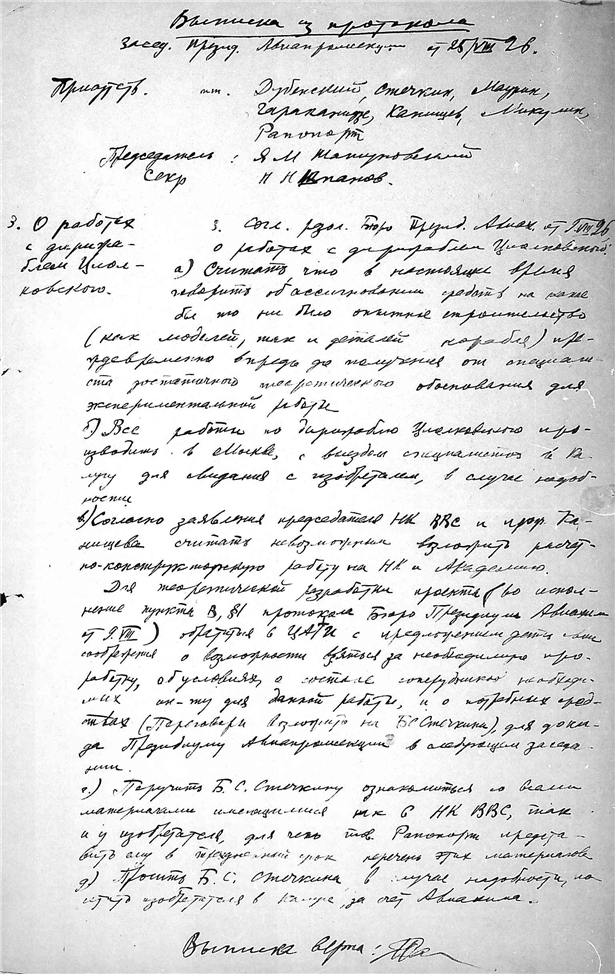 Выписка из протокола
засед. презид. Авиапромсекции от 25/VIII 26.
Присутств. т.т. Дубенский, Стечкин, Маурин,
Канищев, Микулин,
Рапопорт
Председатель : Я М Шатуновский
Секр Н Н Шпанов.
3. О работах
с дирижа-
блем Циол-
ковского.
3. Согл. резол. Бюро Презид. Авиах. от VIII 26
о работах с дирижаблем Циолковского:
а) Считать что в настоящее время
говорить об ассигновании средств на какое
бы то ни было опытное строительство
(как моделей, так и деталей корабля) пре-
ждевременно впредь до получения от специали-
ста достаточного теоретического обоснования для
экспериментальной работы
б) Все работы по дирижаблю Циолковского про-
изводить в Москве, с выездом специалистов в Ка-
лугу для свидания с изобретателем, в случае надоб-
ности
в) Согласно заявления председателя НК ВВС и проф. Ка-
нищева считать невозможным возложить расчет-
но-конструкторскую работу на НК и Академию.
Для теоретической разработки проекта (во испол-
нение пункта В, §1 протокола Бюро Президиума Авиахим
от 9.VIII) обратиться в ЦАГИ с предложением дать
соображения о возможности взяться за необходимую про-
работку, об условиях, о составе сотрудников необходи-
мых ин-ту для данной работы, и о потребных сред-
ствах (Переговоры возложить на Б С Стечкина), для докла-
да Президиуму Авиапромсекции в следующем заседа-
нии.
г.) Поручить Б. С. Стечкину ознакомиться со всеми
материалами имеющимися как в НК ВВС, так
и у изобретателя, для чего тов. Рапопорт предста-
вить ему в трехдневный срок перечень этих материалов
д) Просить Б. С. Стечкина в случае надобности, по-
сетить изобретателя в Калуге, за счет Авиахима.
Выписка верна :